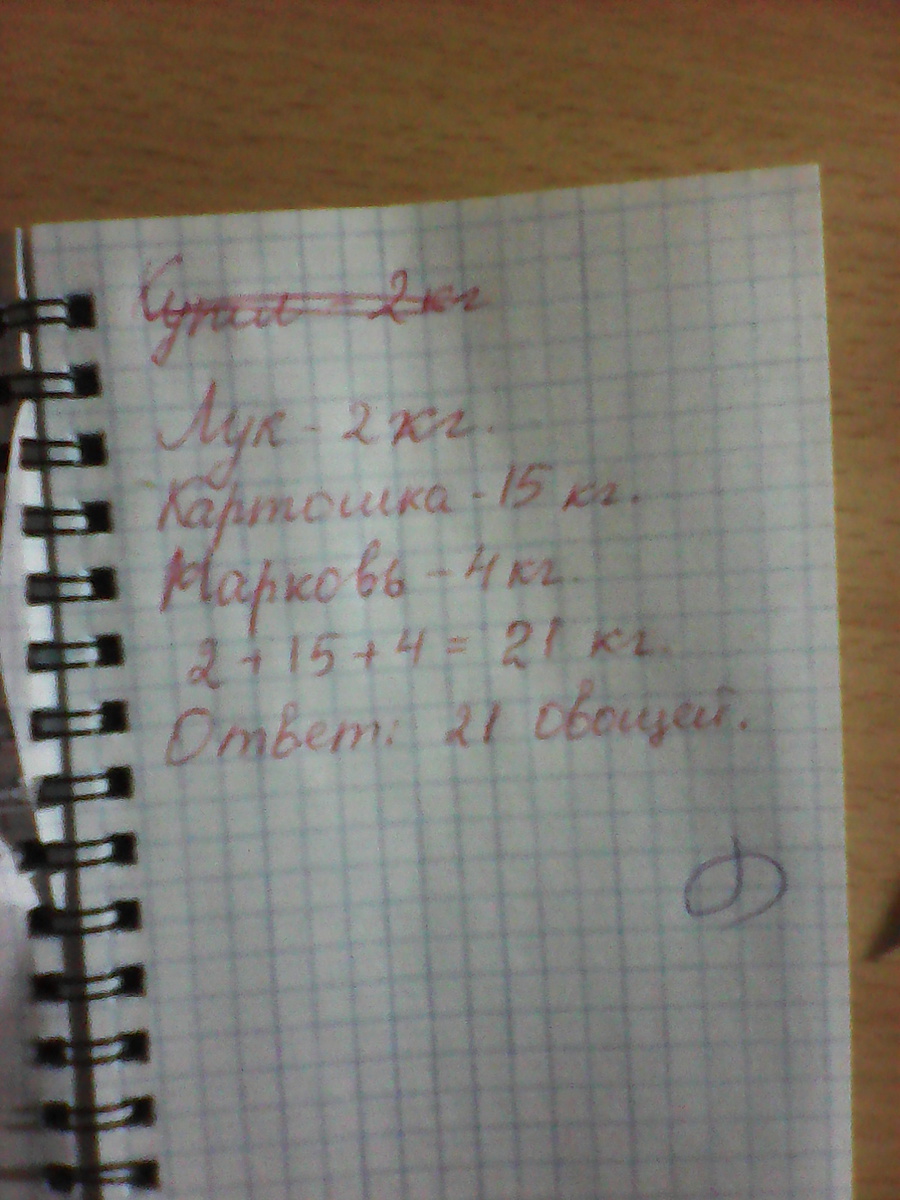 2 кг
Лук - 2 кг.
Картошка - 15 кг.
Марковь - 4 кг.
2 + 15 + 4 = 21 кг.
Ответ: 21 овощей.